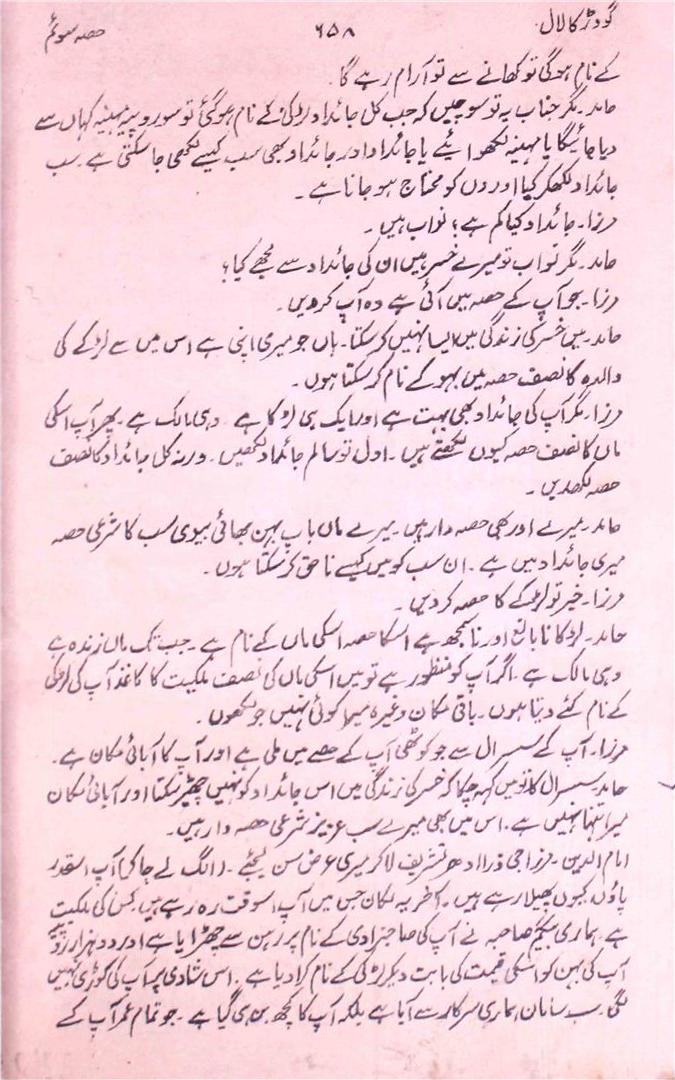 گودڑ کا لال ۶۵۸ حصہ سوئم
کے نام ہوگی تو کھانے سے تو آرام رہے گا۔
حامد۔ مگر جناب یہ تو سوچیں کہ جب کل جائداد لڑکی کے نام ہوگئی تو سو روپیہ مہینہ کہاں سے
دیا جائیگا یا مہینہ لکھوایئے یا جائداد اور جائداد بھی سب کیسے لکھی جاسکتی ہے۔ سب
جائداد لکھکر کیا اوروں کو محتاج ہوجانا ہے۔
مرزا۔ جائداد کیا کم ہے؛ نواب ہیں۔
حامد۔ مگر نواب تو میرے خسر ہیں ان کی جائداد سے مجھے کیا؛
مرزا۔ جو آپ کے حصہ میں آئی ہے وہ آپ کردیں۔
حامد۔ میں خسر کی زندگی میں ایسا نہیں کرسکتا۔ ہاں جو میری اپنی ہے اس میں سے لڑکے کی
والدہ کا نصف حصہ میں بہو کے نام کرسکتا ہوں۔
مرزا۔ مگر آپ کی جائداد بھی بہت ہے اور ایک ہی لڑکا ہے۔ وہی مالک ہے۔ پھر آپ اسکی
ماں کا نصف حصہ کیوں لکھتے ہیں۔ اول تو سالم جائداد لکھیں۔ ورنہ کل جائداد کا نصف
حصہ لکھدیں۔
حامد۔ میرے اور بھی حصہ دار ہیں۔ میرے ماں باپ بہن بھائی بیوی سب کا شرعی حصہ
میری جائداد میں ہے۔ ان سب کو میں کیسے ناحق کرسکتا ہوں۔
مرزا۔ خیر تو لڑکے کا حصہ کردیں۔
حامد۔ لڑکا نابالغ اور ناسمجھ ہے اسکا حصہ اسکی ماں کے نام ہے۔ جب تک ماں زندہ ہے
وہی مالک ہے۔ اگر آپ کو منظور ہے تو میں اسکی ماں کی نصف ملکیت کا کاغذ آپ کی لڑکی
کے نام کئے دیتا ہوں۔ باقی مکان وغیرہ میرا کوئی نہیں جو لکھوں۔
مرزا۔ آپ کے سسرال سے جو کوٹھی آپ کے حصے میں ملی ہے اور آپ کا آبائی مکان ہے۔
حامد۔ سسرال کا تو میں کہہ چکا کہ خسر کی زندگی میں اس جائداد کو نہیں چھیڑ سکتا اور آبائی مکان
میرا تنہا نہیں ہے۔ اس میں بھی میرے سب عزیز شرعی حصہ دار ہیں۔
امام الدین۔ مرزا جی ذرا ادھر تشریف لاکر میری عرض سن لیجئے۔ (الگ لے جاکر) آپ اسقدر
پاؤں کیوں پھیلا رہے ہیں۔ آخر یہ مکان جس میں آپ اسوقت رہ رہے ہیں کس کی ملکیت
ہے۔ ہماری بیگم صاحبہ نے آپ کی صاحبزادی کے نام پر رہن سے چھڑایا ہے اور دو ہزار روپیہ
آپ کی بہن کو اسکی قیمت کی بابت دیکر لڑکی کے نام کرادیا ہے۔ اس شادی پر آپ کی کوڑی نہیں
لگی۔ سب سامان ہماری سرکار سے آیا ہے بلکہ آپ کا کچھ بن ہی گیا ہے۔ جو تمام عمر آپ کے